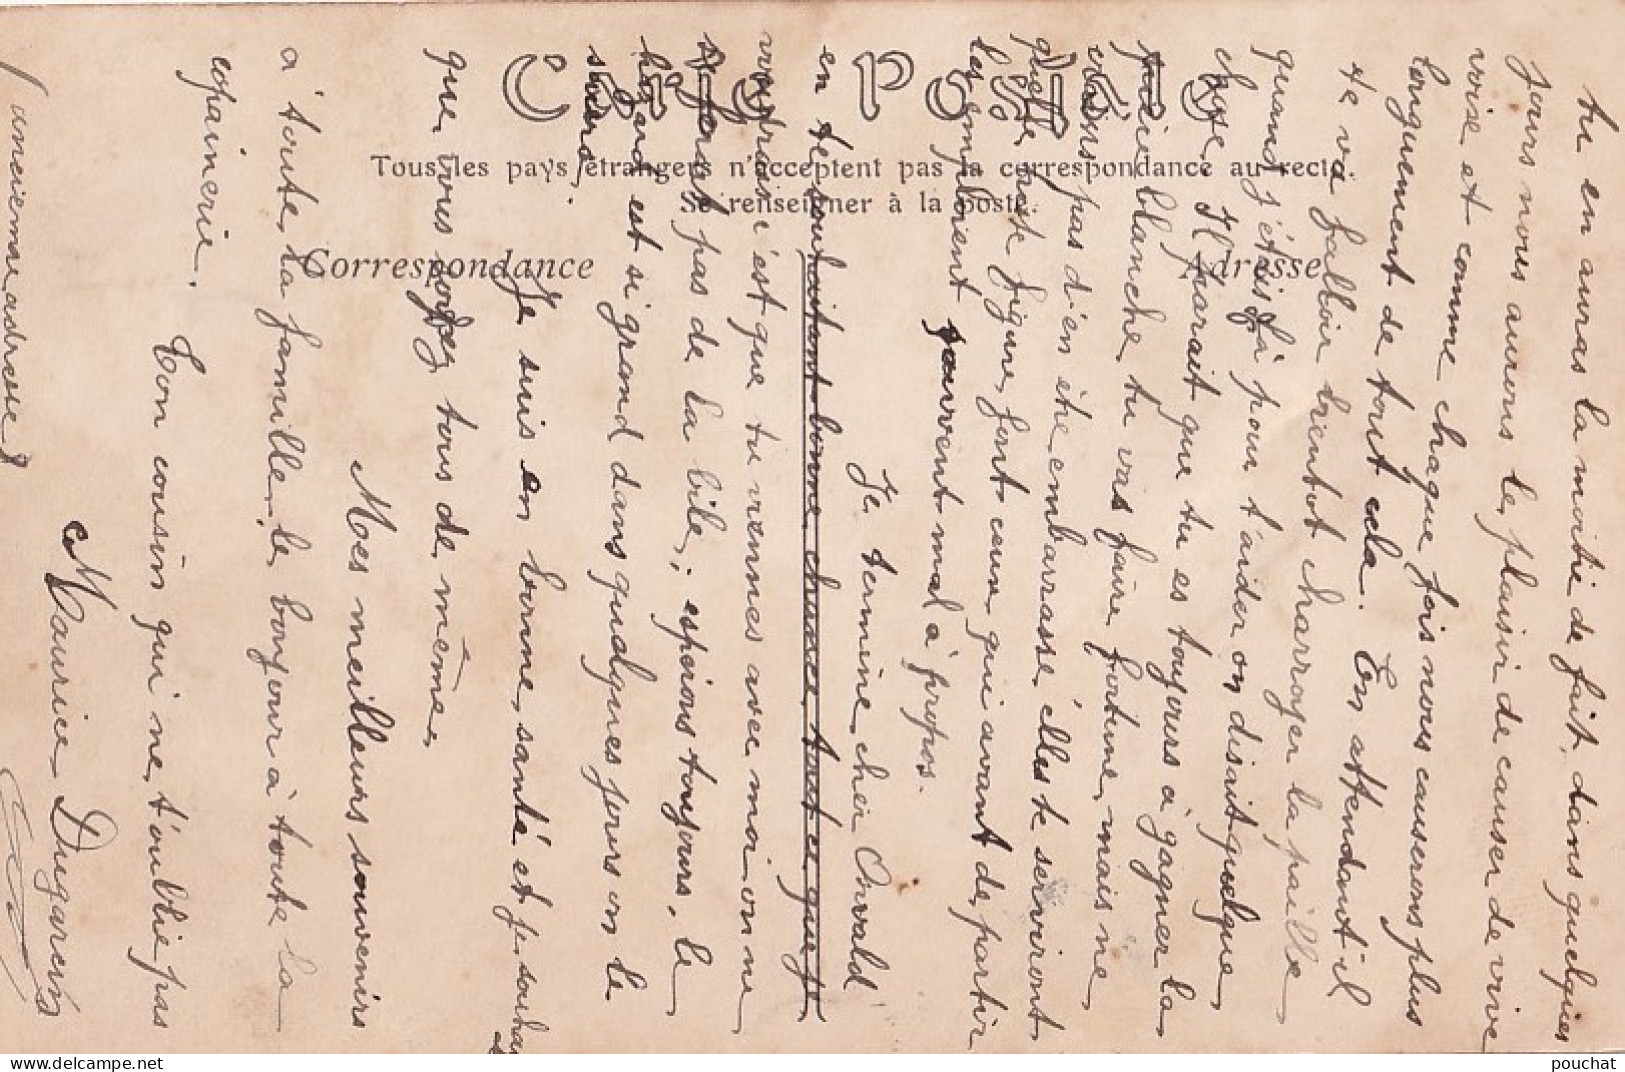 Carte Postale
Tous les pays étrangers n'acceptent pas la correspondance au recto.
Se renseigner à la poste.
Correspondance
Adresse
tu en auras la moitié de fait, dans quelques
jours nous aurons le plaisir de causer de vive
voise et comme chaque fois nous causerons plus
longuement de tout cela. En attendant il
te va falloir bientot charroyer la paille
quand j'étais là pour t'aider on disait quelque
chose. Il parait que tu es toujours à gagner la
blanche tu vas faire fortune, mais ne
vas pas d'en être embarrassé, elles te serviront
figure, font ceux qui avant de partir
les emploient souvent mal à propos.
Je termine cher Onvald
en te souhaitant bonne chance, tout ce que je
voudrais c'est que tu viennes avec moi on ne
se ferait pas de la bile, espérons toujours, le
hazard est si grand dans quelques jours on le
saura.
Je suis en bonne santé et je souhai
que vous soyez tous de même.
Mes meilleurs souvenirs
à toute la famille, le bonjour à toute la
copainerie.
Ton cousin qui ne t'oublie pas
Maurice Dugarein
(ancienne adresse)
pouchat